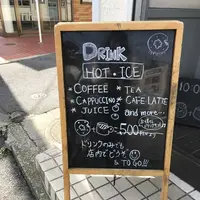 DRINK
HOT・ICE
* COFFEE * TEA
* CAPPUCCINO * CAFE LATTE
* JUICE and more...
+ = 500
ドリンクのみでも
店内でどうぞ
& TO GO!!!